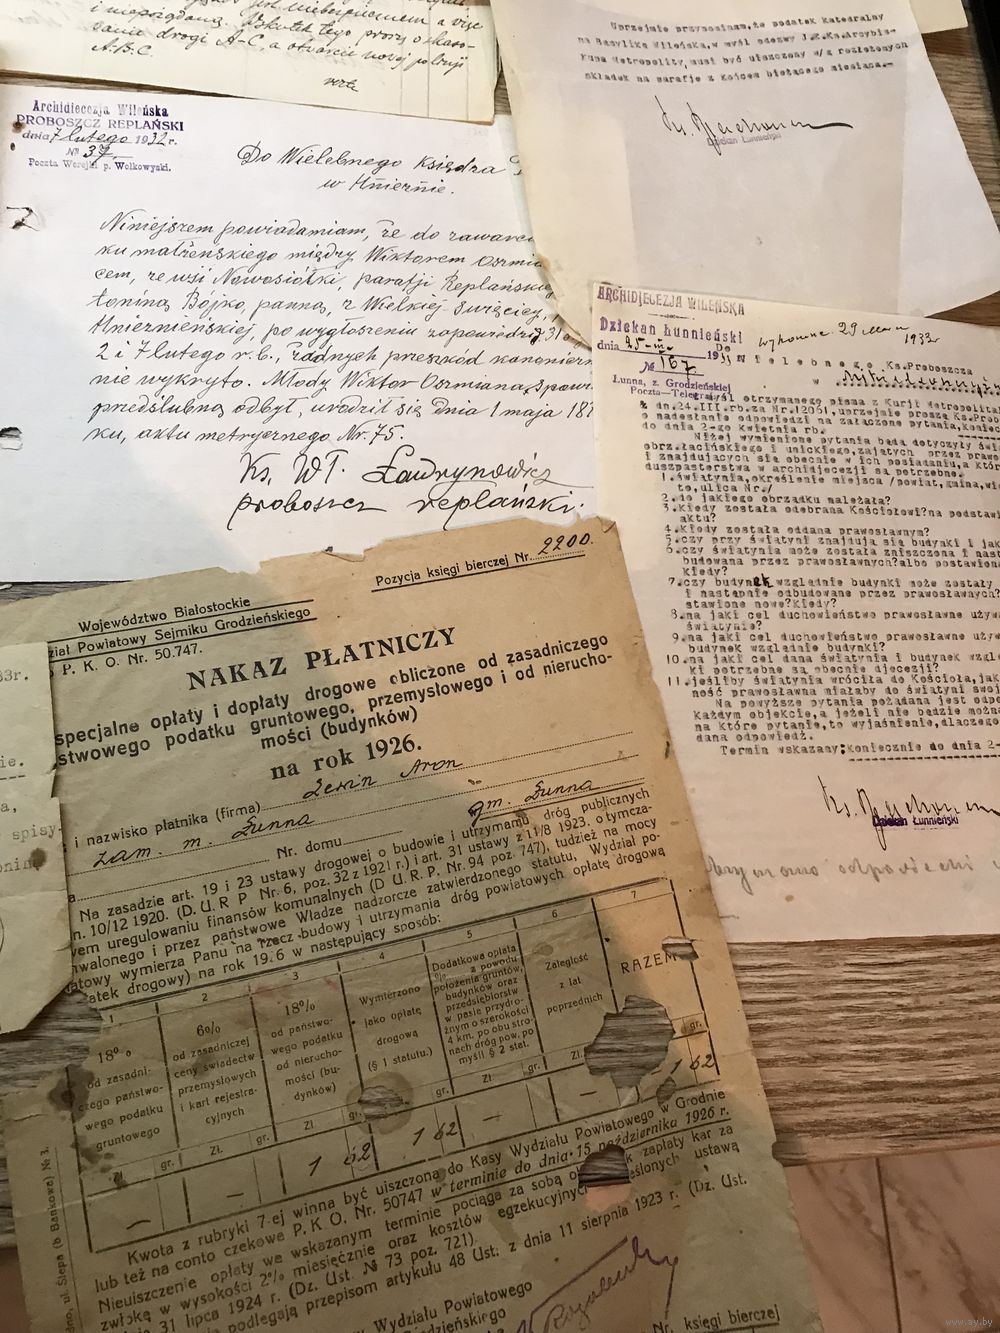 i niepożądaną. Wskutek tego proszę o skaso-
wanie drogi A-C, a otwarcie nowej po linji
A-B-C.
verte
Uprzejmie przypominam, że podatek Katedralny
na Bazylikę Wileńską, w myśl odezwy J.E.Ks.Arcybis-
kupa Metropolity, musi być uiszczony w/g rozłożonych
składek na parafje z końcem bieżącego miesiąca.—
Dziekan Łunnieński
Archidiecezja Wileńska
PROBOSZCZ REPLAŃSKI
dnia 7 lutego 1932 r.
№ 37
Poczta Werejki p. Wołkowyski.
Do Wielebnego Księdza
w Hnieźnie.
Niniejszem powiadamiam, że do zawarc
ku małżeńskiego między Wiktorem Oszmia
cem, ze wsi Nowosiółki, parafji Replańskiej
toniną Bójko, panną, z Wielkiej Swięcicy,
Hnieźnieńskiej, po wygłoszeniu zapowiedzi 31
2 i 7 lutego r. b., żadnych przeszkód kanoniczn
nie wykryto. Młody Wiktor Oszmiana, spowi
przedślubną odbył, urodził się dnia 1 maja 18
ku, aktu metrycznego Nr. 75.
Ks. Wł. Ławrynowicz
proboszcz replański.
ARCHIDIECEZJA WILEŃSKA
Dziekan Łunnieński
dnia 25-III- 1933
№ 167
Łunna, z. Grodzieńskiej
Poczta—Telegraf
29 1933r
Do
Wielebnego Ks.Proboszcza
w
W myśl otrzymanego pisma z Kurji Metropolital
z dn.24.III.rb.za Nr.12051, uprzejmie proszę Ks.Prob
o nadesłanie odpowiedzi na załączone pytania, koniec
do dnia 2-go kwietnia rb.
Niżej wymienione pytania będą dotyczyły świ
obrz.łacińskiego i unickiego, zajętych przez prawo
i znajdujących się obecnie w ich posiadaniu, a któr
duszpasterstwa w archidjecezji są potrzebne.
1. świątynia, określenie miejsca /powiat, gmina, wie
to, ulica Nr./
2. do jakiego obrządku należała?
3. kiedy została odebrana Kościołowi? na podstawi
aktu?
4. kiedy została oddana prawosławnym?
5. czy przy świątyni znajdują się budynki i jak
6. czy świątynia może została zniszczona i nast
budowana przez prawosławnych? albo postawiona
kiedy?
7. czy budynek względnie budynki może zostały
i następnie odbudowane przez prawosławnych?
stawione nowe? kiedy?
8. na jaki cel duchowieństwo prawosławne używ
świątynię?
9. na jaki cel duchowieństwo prawosławne używ
budynek względnie budynki?
10. na jaki cel dana świątynia i budynek wzglę
ki potrzebne są obecnie djecezji?
11. jeśliby świątynia wróciła do Kościoła, jak
ność prawosławna miałaby do świątyni swoj
Na powyższe pytania pożądana jest odpo
każdym objekcie, a jeżeli nie będzie można
na które pytanie, to wyjaśnienie, dlaczego
dana odpowiedź.
Termin wskazany: koniecznie do dnia 2-
Dziekan Łunnieński
odpowiedzi
Pozycja księgi bierczej Nr. 2200.
Województwo Białostockie
ział Powiatowy Sejmiku Grodzieńskiego
P. K. O. Nr. 50.747.
NAKAZ PŁATNICZY
specjalne opłaty i dopłaty drogowe obliczone od zasadniczego
stwowego podatku gruntowego, przemysłowego i od nierucho-
mości (budynków)
na rok 1926.
i nazwisko płatnika (firma) Lewin Aron
zam. m. Łunna gm. Łunna
Nr. domu
Na zasadzie art. 19 i 23 ustawy drogowej o budowie i utrzymaniu dróg publicznych
n. 10/12 1920. (D. U. R. P. Nr. 6, poz. 32 z 1921 r.) i art. 31 ustawy z 11/8 1923. o tymcza-
wem uregulowaniu finansów komunalnych (D. U. R. P. Nr. 94 poz. 747), tudzież na mocy
hwalonego i przez państwowe Władze nadzorcze zatwierdzonego statutu, Wydział po-
atowy wymierza Panu na rzecz budowy i utrzymania dróg powiatowych opłatę drogową
atek drogowy) na rok 1926 w następujący sposób:
1 2 3 4 5 6 7
18% od zasadni-
czego państwo-
wego podatku
gruntowego
6%
od zasadniczej
ceny świadectw
przemysłowych
i kart rejestra-
cyjnych
18%
od państwo-
wego podatku
od nierucho-
mości (bu-
dynków)
Wymierzono
jako opłatę
drogową
(§ 1 statutu.)
Dodatkowa opłata
% z powodu
położenia gruntów,
budynków oraz
przedsiębiorstw
w pasie przydro-
żnym o szerokości
4 km. po obu stro-
nach dróg pow. po
myśli § 2 stat.
Zaległość
z lat
poprzednich
RAZEM
Zł. gr. Zł. gr. Zł. gr. Zł. gr. Zł. gr. Zł. gr.
— — 1 62 1 62 — — 1 62
Kwota z rubryki 7-ej winna być uiszczona do Kasy Wydziału Powiatowego w Grodnie
lub też na konto czekowe P. K. O. Nr. 50747 w terminie do dnia 15 października 1926 r.
Nieuiszczenie opłaty we wskazanym terminie pociąga za sobą o k zapłaty kar za
zwłokę w wysokości 2% miesięcznie oraz kosztów egzekucyjnych eślonych ustawą
31 lipca 1924 r. (Dz. Ust. № 73 poz. 721).
podlegają przepisom artykułu 48 Ust. z dnia 11 sierpnia 1923 r. (Dz. Ust.
Wydziału Powiatowego
Nr. księgi bierczej
dno, ul. Ślepa (b Bankowe) № 3.
33r.
spisy-
www.ay.by